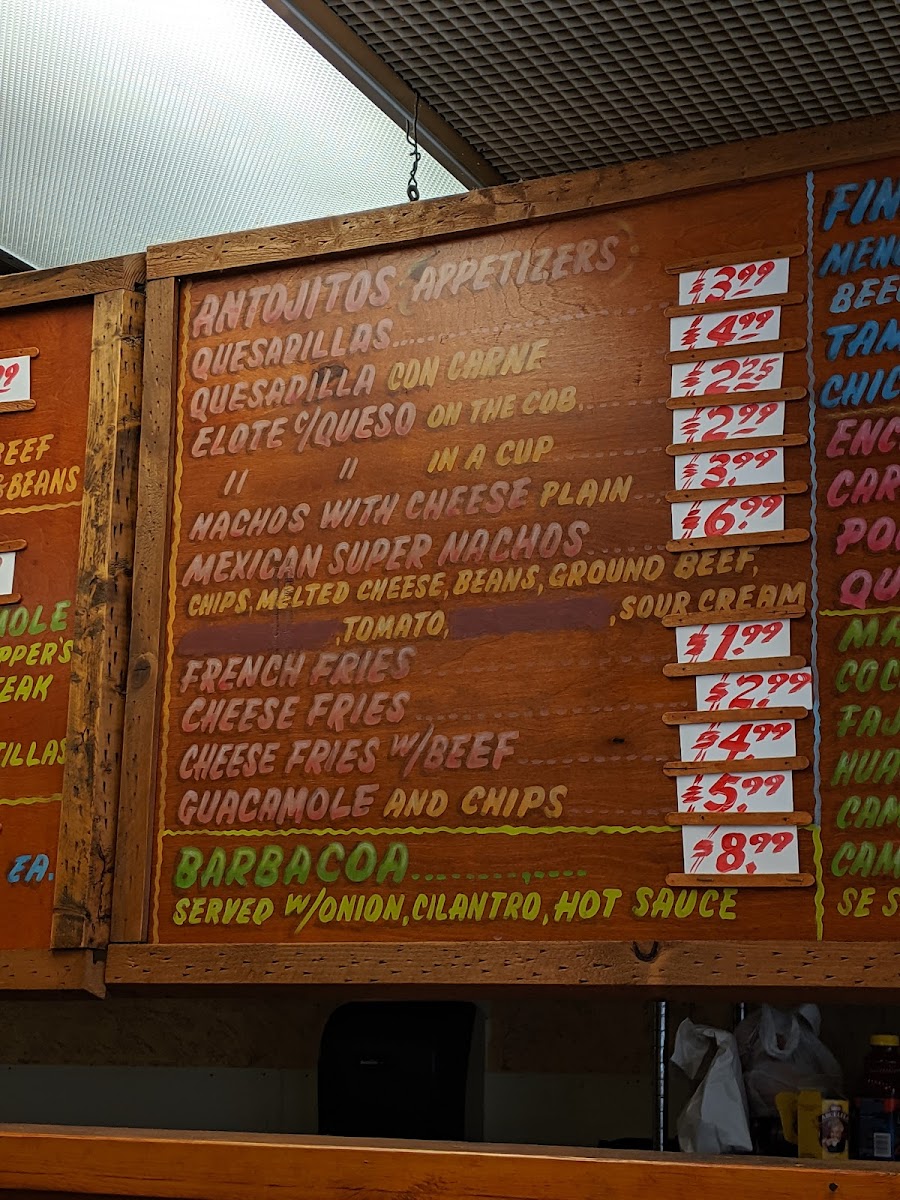 99
BEEF
& BEANS
MOLE
PPER'S
TEAK
TILLAS
EA.
ANTOJITOS APPETIZERS
QUESADILLAS..... $3.99
QUESADILLA CON CARNE $4.99
ELOTE C/QUESO ON THE COB..... $2.25
" " IN A CUP $2.99
NACHOS WITH CHEESE PLAIN... $3.99
MEXICAN SUPER NACHOS..... $6.99
CHIPS, MELTED CHEESE, BEANS, GROUND BEEF,
,TOMATO, ,SOUR CREAM
FRENCH FRIES $1.99
CHEESE FRIES..... $2.99
CHEESE FRIES W/BEEF..... $4.99
GUACAMOLE AND CHIPS..... $5.99
BARBACOA............ $8.99
SERVED W/ONION, CILANTRO, HOT SAUCE
FIN
MENU
BEE
TAM
CHIC
ENC
CAR
POL
QU
MA
COC
FAJ
HUA
CAM
CAM
SE S